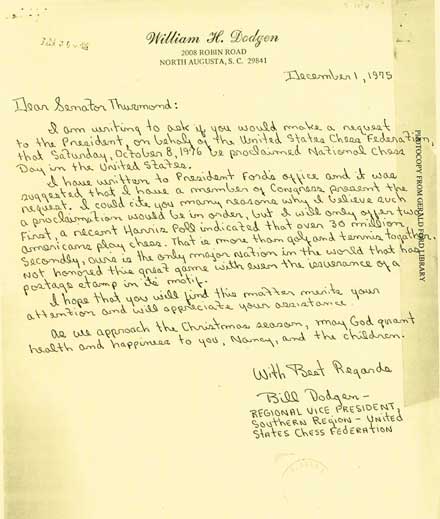 William H. Dodgen
2008 ROBIN ROAD
NORTH AUGUSTA, S. C. 29841
December 1, 1975
Dear Senator Thurmond:
I am writing to ask if you would make a request
to the President, on behalf of the United States Chess Federation,
that Saturday, October 8, 1976 be proclaimed National Chess
Day in the United States.
I have written to President Ford's office and it was
suggested that I have a member of Congress present the
request. I could cite you many reasons why I believe such
a proclamation would be in order, but I will only offer two.
First, a recent Harris Poll indicated that over 30 million
americans play chess. That is more than golf and tennis together.
Secondly, ours is the only major nation in the world that has
not honored this great game with even the issuance of a
postage stamp in its motif.
I hope that you will find this matter merits your
attention and will appreciate your assistance.
As we approach the Christmas season, may God grant
health and happiness to you, Nancy, and the children.
With Best Regards
Bill Dodgen -
REGIONAL VICE PRESIDENT,
SOUTHERN REGION - UNITED
STATES CHESS FEDERATION
PHOTOCOPY FROM GERALD FORD LIBRARY